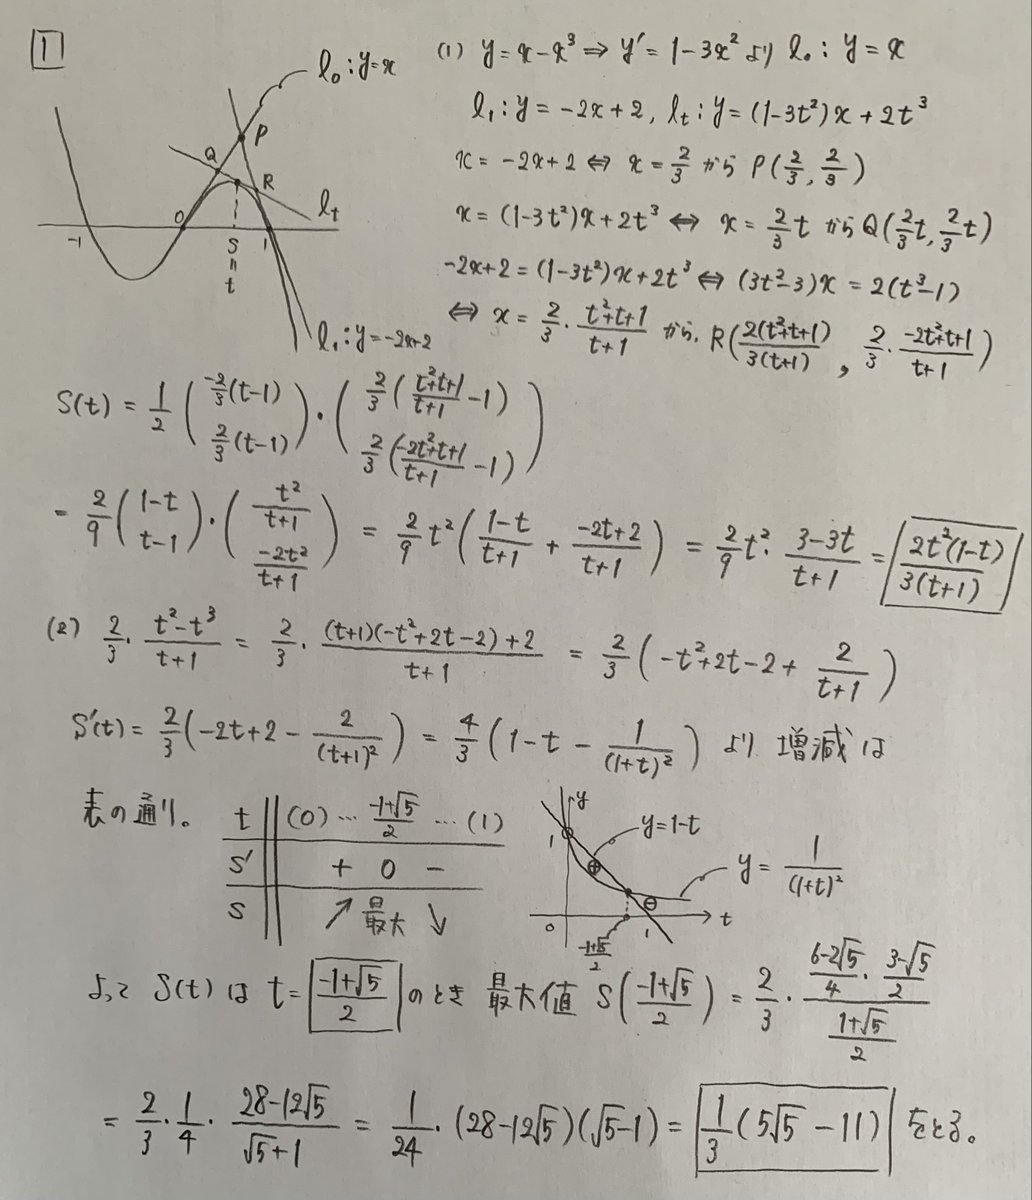 1
l₀: y=x
P
Q
R
lₜ
-1
0
S
1
=
t
l₁: y=-2x+2
(1) y=x-x³ ⇒ y'=1-3x² より l₀: y=x
l₁: y=-2x+2, lₜ: y=(1-3t²)x+2t³
x=-2x+2 ⇔ x=2/3 から P(2/3, 2/3)
x=(1-3t²)x+2t³ ⇔ x=2/3 t から Q(2/3 t, 2/3 t)
-2x+2=(1-3t²)x+2t³ ⇔ (3t²-3)x=2(t³-1)
⇔ x=2/3・(t²+t+1)/(t+1) から, R(2(t²+t+1)/3(t+1), 2/3・(-2t²+t+1)/(t+1))
S(t)=1/2 (-2/3(t-1), 2/3(t-1))・(2/3((t²+t+1)/(t+1) -1), 2/3((-2t²+t+1)/(t+1) -1))
=2/9 (1-t, t-1)・(t²/(t+1), -2t²/(t+1)) = 2/9 t²((1-t)/(t+1) + (-2t+2)/(t+1)) = 2/9 t²・(3-3t)/(t+1) = 2t²(1-t)/3(t+1)
(2) 2/3・(t²-t³)/(t+1) = 2/3・((t+1)(-t²+2t-2)+2)/(t+1) = 2/3(-t²+2t-2+2/(t+1))
S'(t)=2/3(-2t+2-2/(t+1)²) = 4/3(1-t-1/(1+t)²) より, 増減は
表の通り。
t (0) … (-1+√5)/2 … (1)
S' + 0 -
S ↗ 最大 ↘
y
1
y=1-t
y=1/(1+t)²
⊕
⊖
0
(-1+√5)/2
1
t
よって S(t)は t=(-1+√5)/2 のとき 最大値 S((-1+√5)/2) = 2/3・((6-2√5)/4・(3-√5)/2)/((1+√5)/2)
=2/3・1/4・(28-12√5)/(√5+1) = 1/24・(28-12√5)(√5-1) = 1/3(5√5-11) をとる。